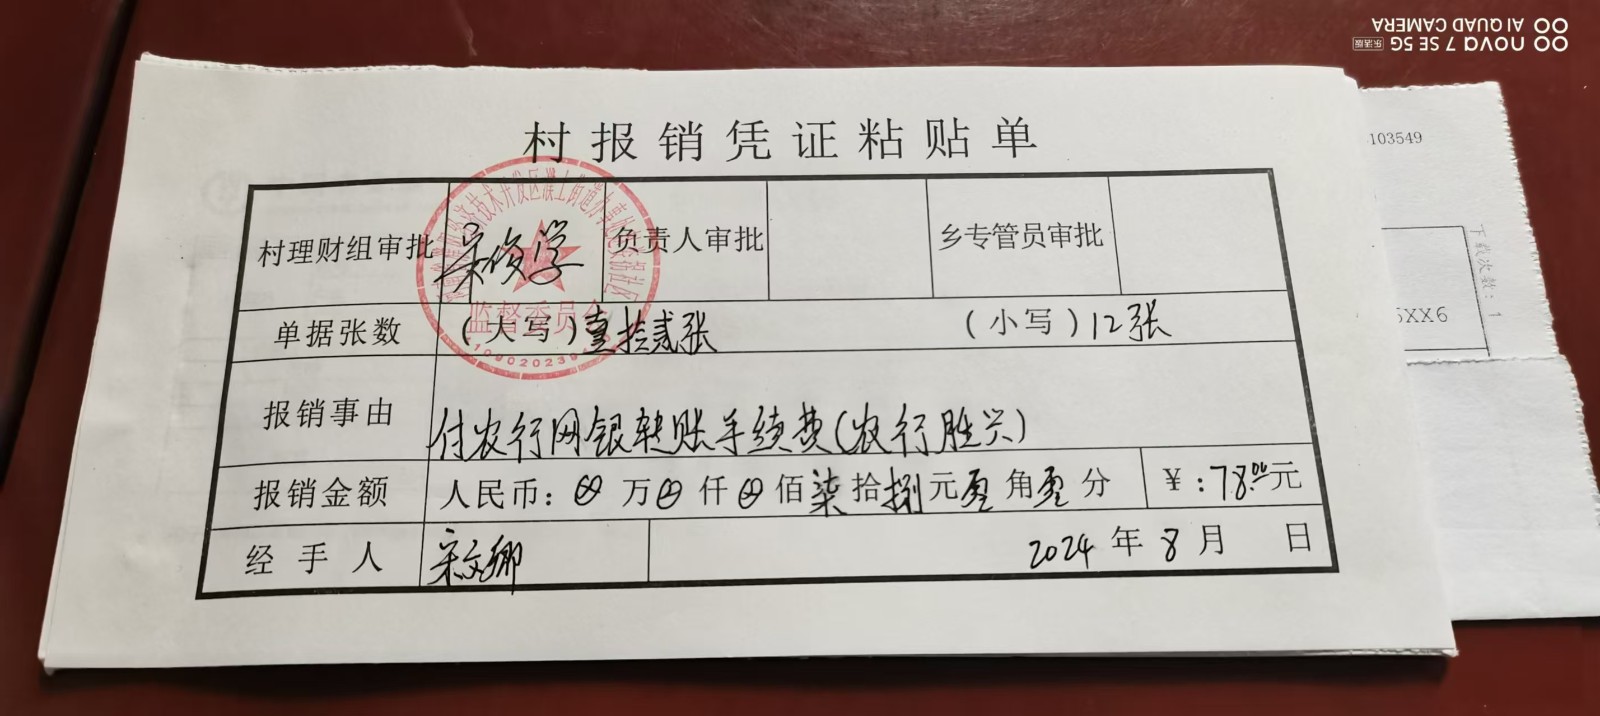 村报销凭证粘贴单
村理财组审批 宋俊学 负责人审批 乡专管员审批
单据张数 (大写)壹拾贰张 (小写)12张
报销事由 付农行网银转账手续费(农行胜兴)
报销金额 人民币: 万 仟 佰柒拾捌元零角零分 ¥:78.00元
经手人 宋文卿 2024年8月 日
监督委员会
103549
下载次数:1
5XX6
nova 7 SE 5G 乐活版
AI QUAD CAMERA